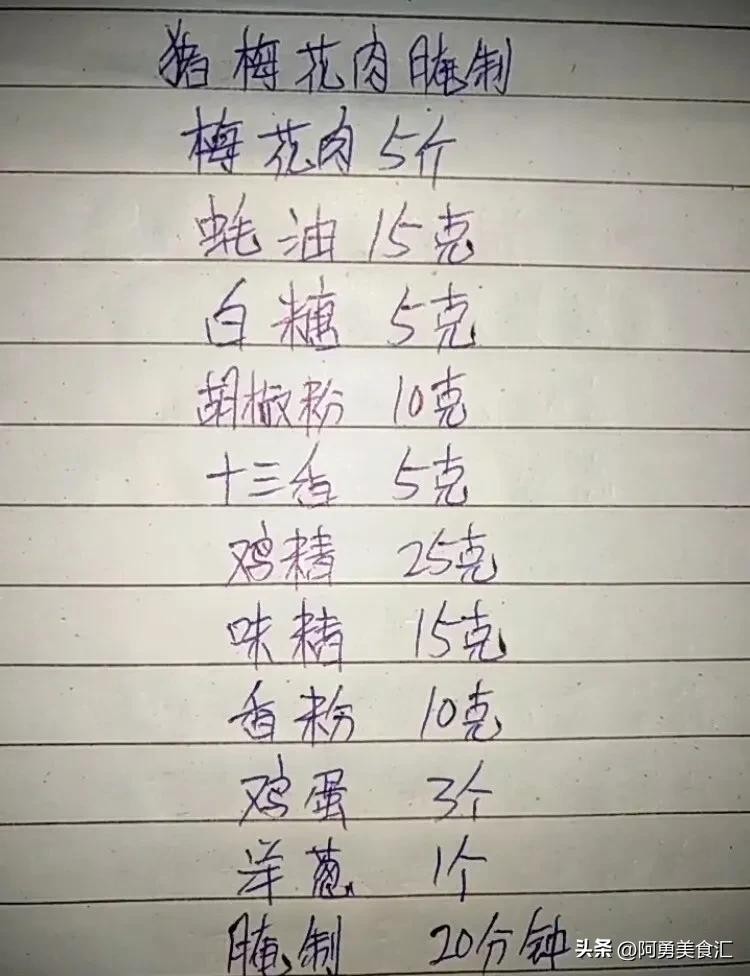 猪梅花肉腌制
梅花肉 5斤
蚝油 15克
白糖 5克
胡椒粉 10克
十三香 5克
鸡精 25克
味精 15克
香粉 10克
鸡蛋 3个
洋葱 1个
腌制 20分钟
头条 @阿勇美食汇